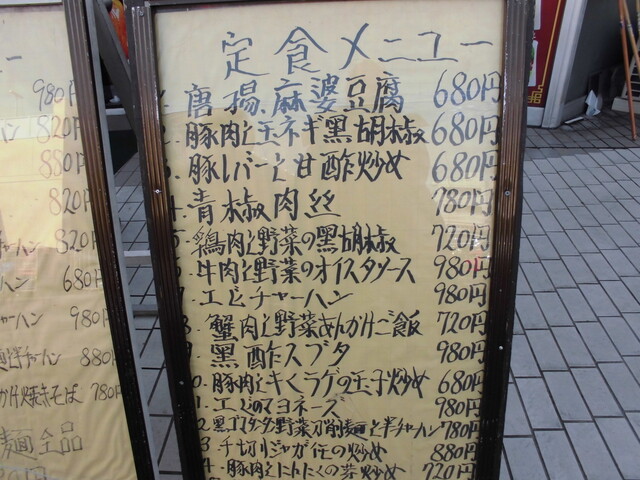 定食メニュー
唐揚麻婆豆腐 680円
2. 豚肉と玉ネギ黒胡椒 680円
3. 豚レバーと甘酢炒め 680円
4. 青椒肉丝 780円
5. 鶏肉と野菜の黒胡椒 720円
6. 牛肉と野菜のオイスタソース 980円
7. エビチャーハン 980円
8. 蟹肉と野菜あんかけご飯 720円
9. 黒酢スブタ 980円
0. 豚肉とキクラゲの玉子炒め 680円
1. エビのマヨネーズ 980円
2. 黒ゴマタンタン野菜刀削麺と半チャーハン 780円
3. 千切りジャガ任の炒め 880円
4. 豚肉とにんにくの芽炒め 720円
980円
ハン 820円
880円
820円
チャーハン 820円
680円
チャーハン 980円
チャーハン 880円
かけ焼きそば 780円
麺全品